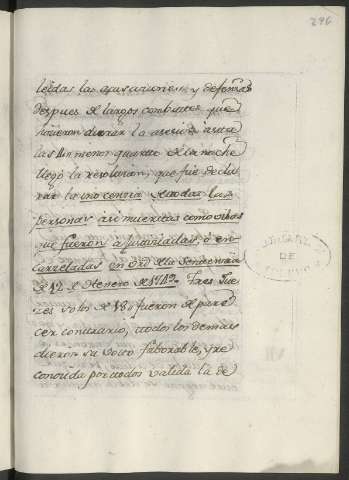 296
leidas las acusaciones y defensas
despues de largos combates que
hicieron durar la asesion asta
las 11 menos quarto de la noche
llegó la resolucion, que fue decla
rar la inocencia de todas las
personas asi muertas como vibas
que fueron ajusticiadas, ó en
carceladas en de la Sentencia
de 12 de Henero de 1759. Tres Jue
zes solos de 18 fueron de pare
cer contrario, todos los demas
dieron su voto faborable, y re
conocida por todos valida la de
DE